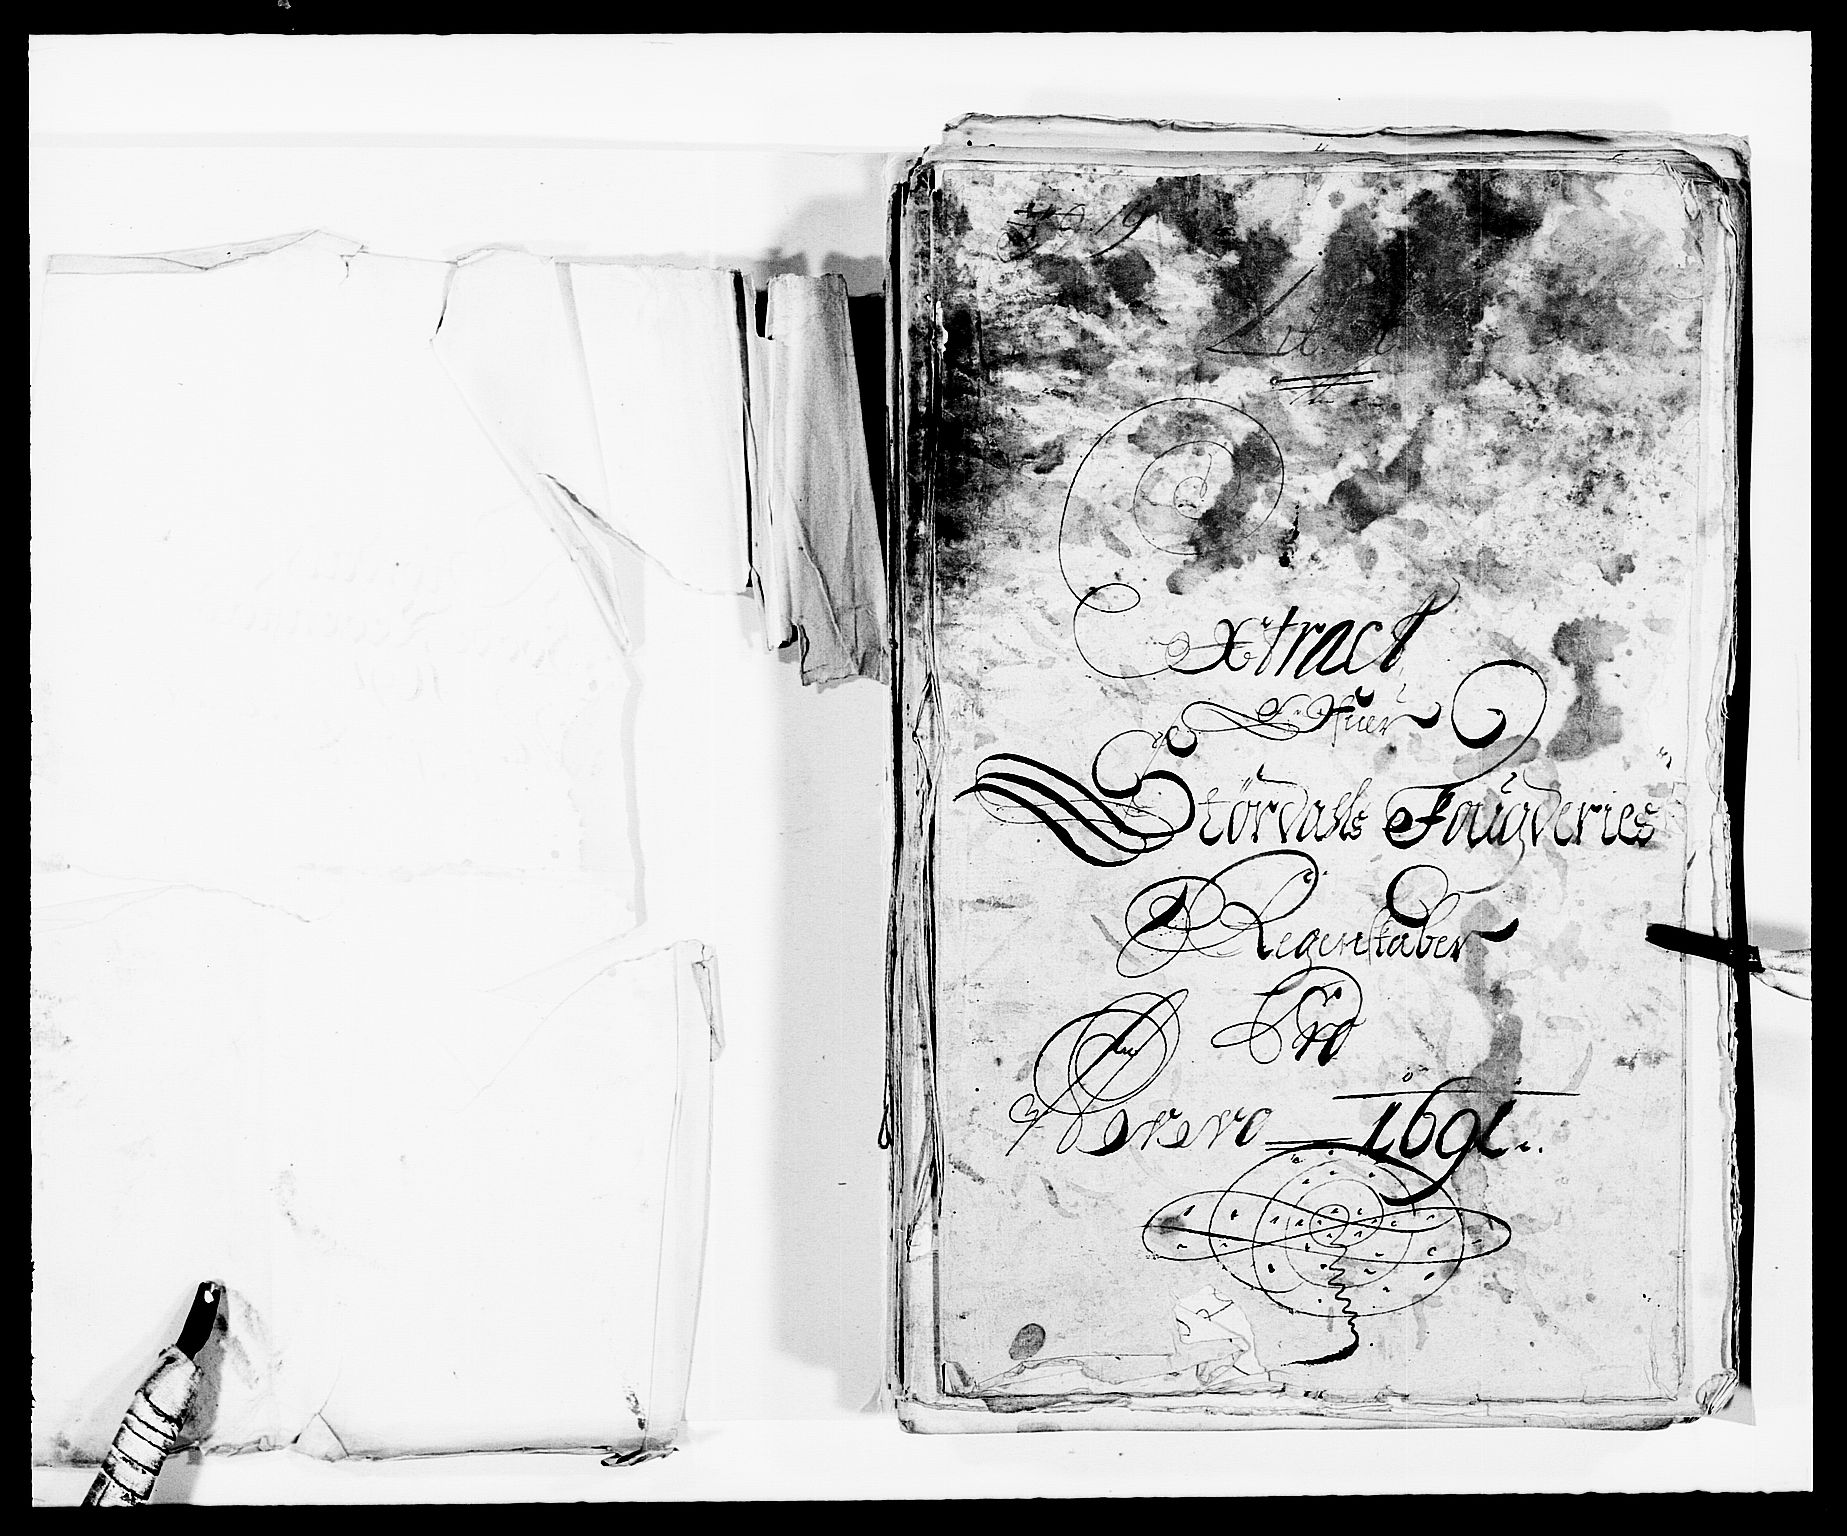 19
Lit.
Extract
Ofuer
Stördahls Fougderies
Regenskaber
Pro
Anno 1691.